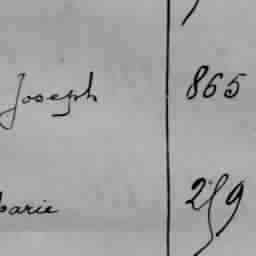 Joseph 865
arie 259